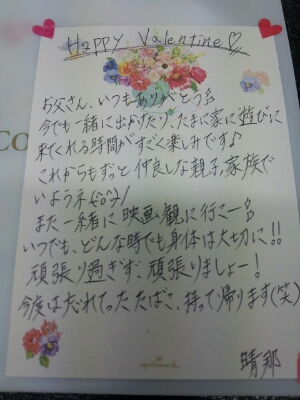 Happy Valentine♡
お父さん、いつもありがとう♪
今でも一緒に出かけたり、たまに家に遊びに
来てくれる時間がすごく楽しみです♪
これからもずっと仲良しな親子、家族で
いようネ(^o^)/
また一緒に映画観に行こー♪
いつでも、どんな時でも身体は大切に!!
頑張り過ぎず、頑張りましょー!
今度は忘れてったたばこ、持って帰ります(笑)
晴那
Hallmark
Co